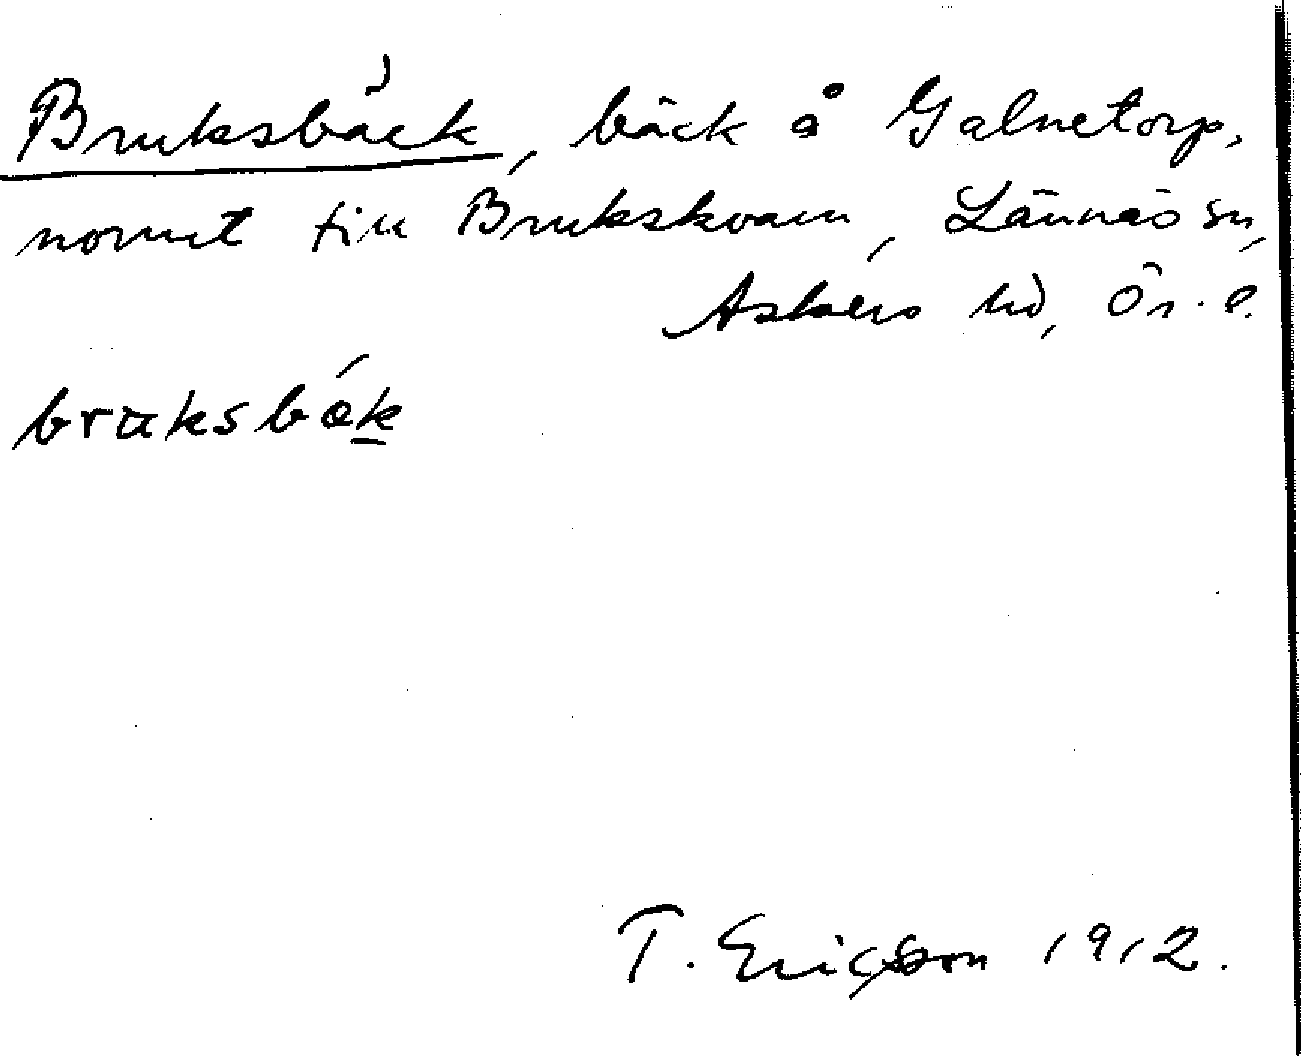 Bruksbäck, bäck å Galnetorp,
norrut till Brukskvarn, Lännäs sn,
Askers hd, Ör. l.
bruksbæk
T. Ericsson 1912.